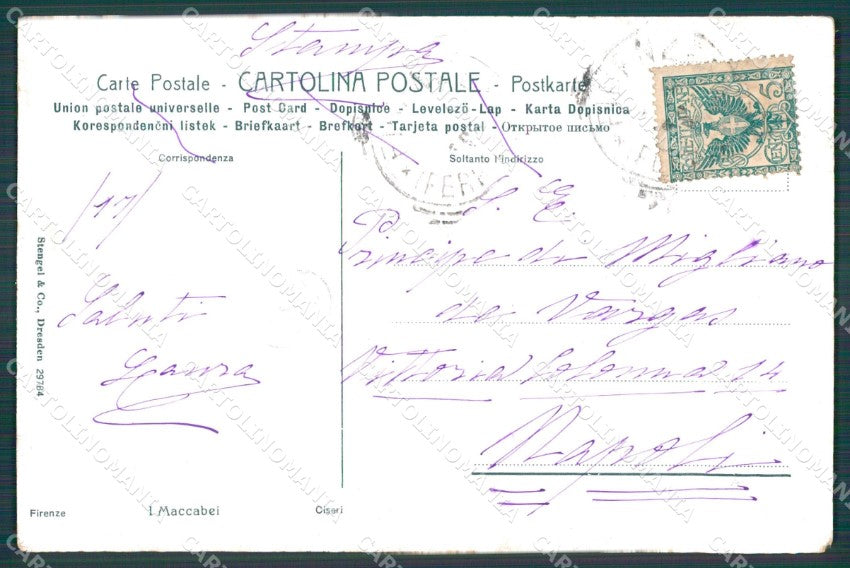 Stampa
Carte Postale - CARTOLINA POSTALE - Postkarte
Union postale universelle - Post Card - Dopisnice - Levelező-Lap - Karta Dopisnica
Korespondenční listek - Briefkaart - Brefkort - Tarjeta postal - Открытое письмо
Corrispondenza
Soltanto l'indirizzo
/17/
Saluti
Laura
S. E.
Principe di Migliano
de Vargas
Vittoria Colonna 14
Napoli
Stengel & Co., Dresden 29784
Firenze
I Maccabei
Ciseri
CARTOLINOMANIA